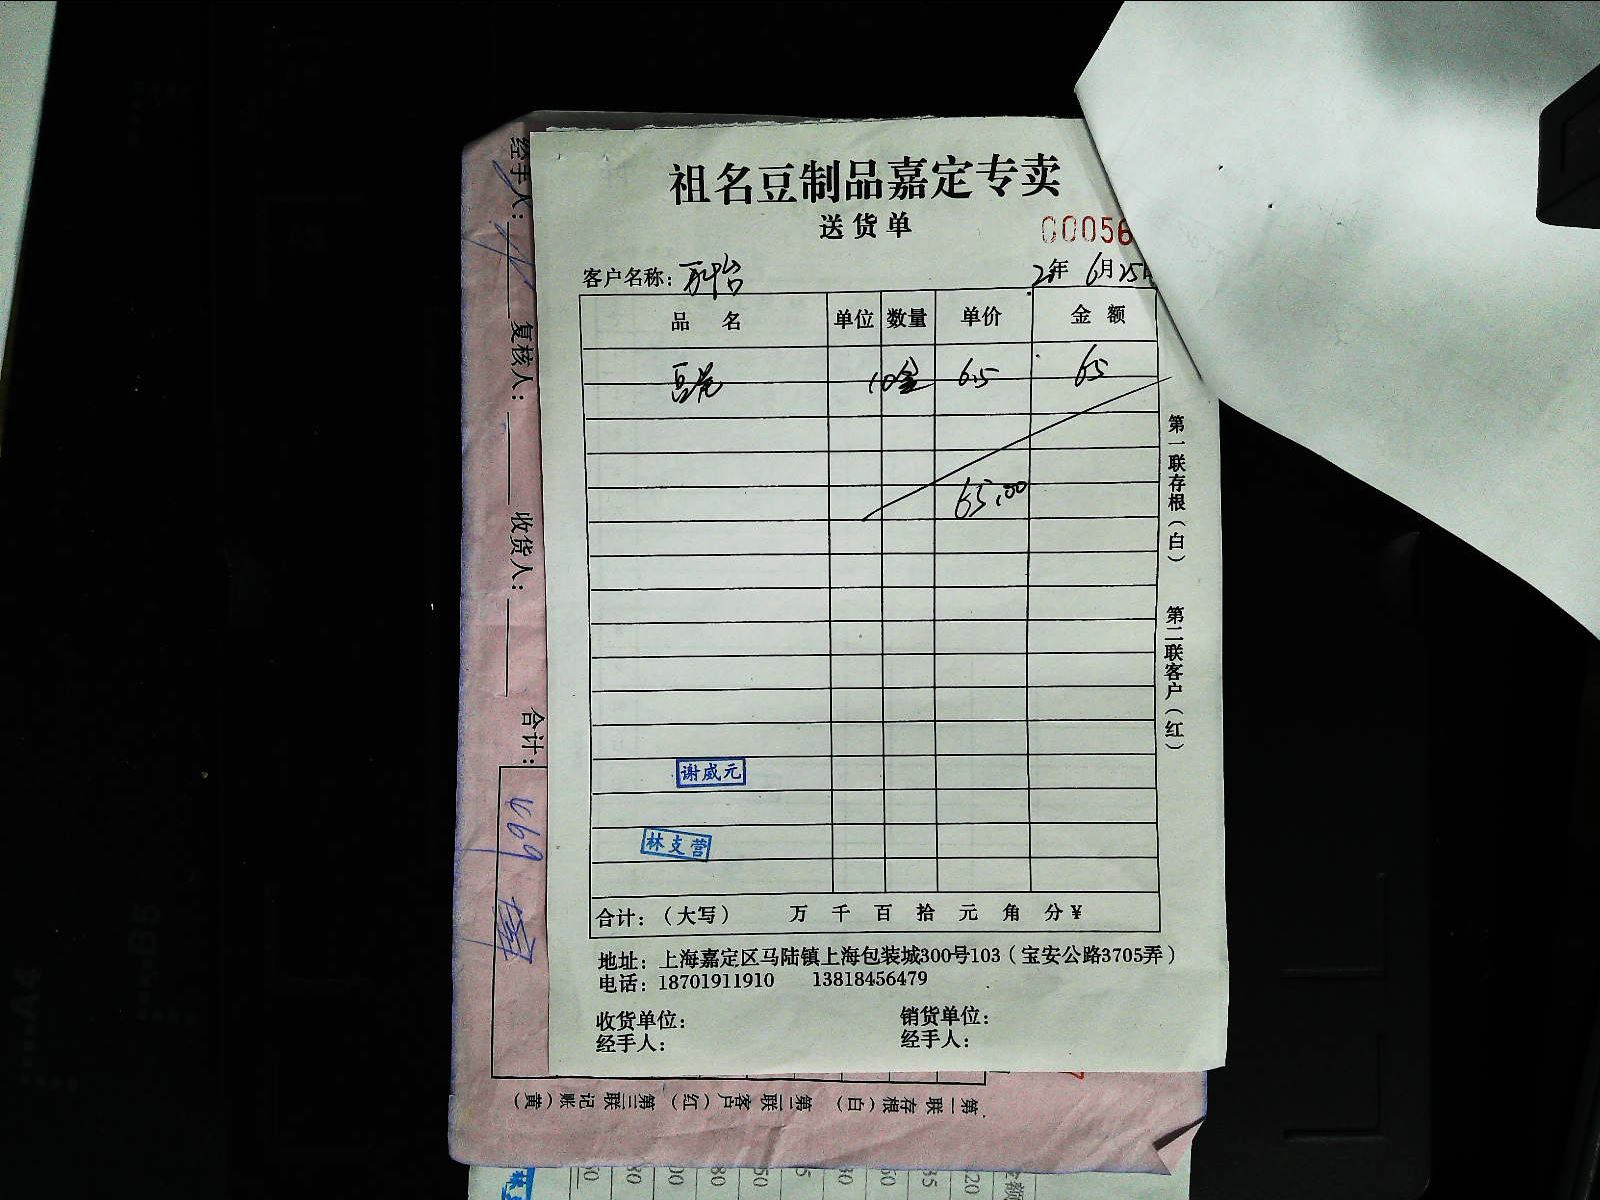 祖名豆制品嘉定专卖
送货单
00056
客户名称：
21年 6月25日
品 名 单位 数量 单价 金 额
豆花 10盒 6.5 65
65.00
谢威元
林支营
合计：（大写） 万 千 百 拾 元 角 分¥
地址：上海嘉定区马陆镇上海包装城300号103（宝安公路3705弄）
电话：18701911910 13818456479
收货单位： 销货单位：
经手人： 经手人：
第一联存根（白） 第二联客户（红）
经手人： 复核人： 收货人： 合计：
第一联存根（白） 第二联客户（红） 第三联记账（黄）